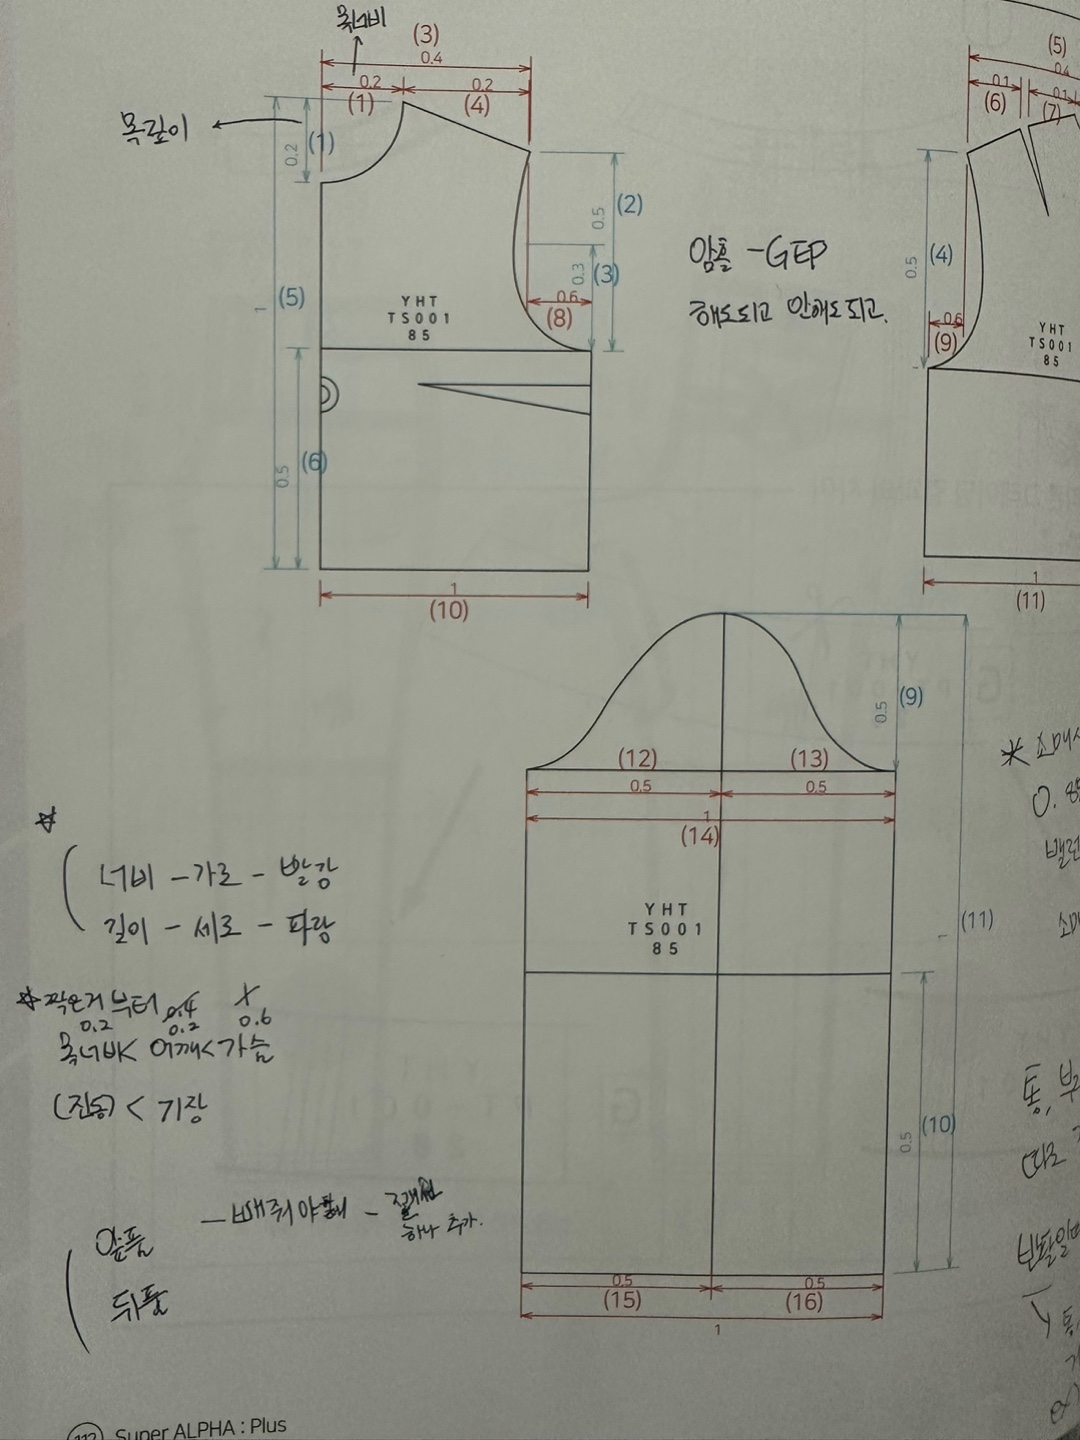 목너비
(3)
0.4
0.2 0.2
(1) (4)
목깊이
0.2 (1)
0.5 (2)
0.3 (3)
0.6
(8)
1 (5)
YHT
TS001
85
0.5 (6)
1
(10)
암홀 - GEP
해도되고 안해도되고.
(5)
0.4
0.1 0.1
(6) (7)
0.5 (4)
0.6
(9)
YHT
TS001
85
1
(11)
0.5 (9)
(12) (13)
0.5 0.5
1
(14)
YHT
TS001
85
1 (11)
0.5 (10)
0.5 0.5
(15) (16)
1
너비 - 가로 - 빨강
길이 - 세로 - 파랑
작은거 부터 0.4
0.2 0.2 0.6
목너비 < 어깨 < 가슴
(진동) < 기장
앞품
뒤품
- 빼줘야돼 -
하나 추가.
* 소매
통, 부
따로
112 Super ALPHA : Plus